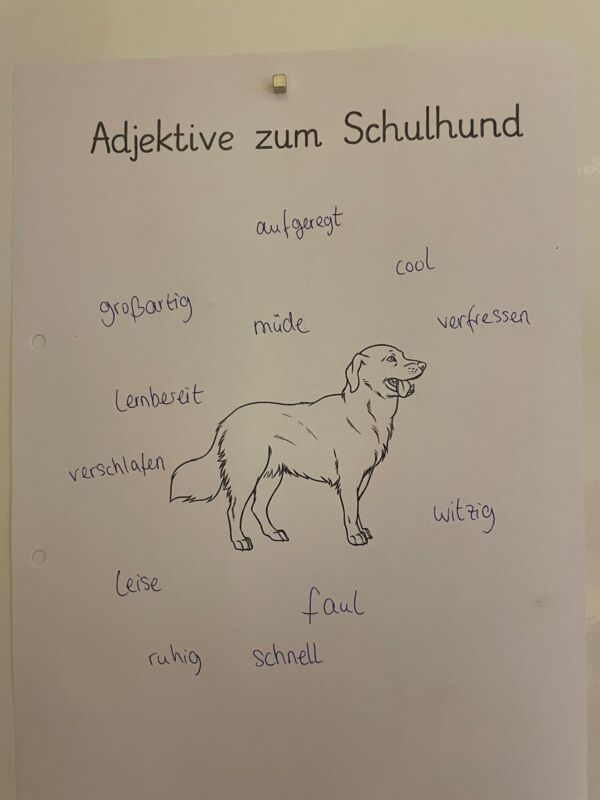 Adjektive zum Schulhund
aufgeregt
cool
großartig
müde
verfressen
Lernbereit
verschlafen
witzig
Leise
faul
ruhig schnell